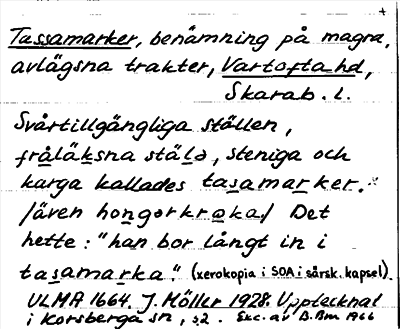 Tassamarker, benämning på magra,
avlägsna trakter, Vartofta hd,
Skarab. l.
Svårtillgängliga ställen,
fråläksna stälə, steniga och
karga kallades tasamarker.
/även hongərkrəkə/ Det
hette: "han bor långt in i
tasamarka." (xerokopia i SOA i särsk. kapsel).
ULMA 1664. J. Möller 1928. Upptecknat
i Korsberga sn, s2. Exc. av B. Bm 1966